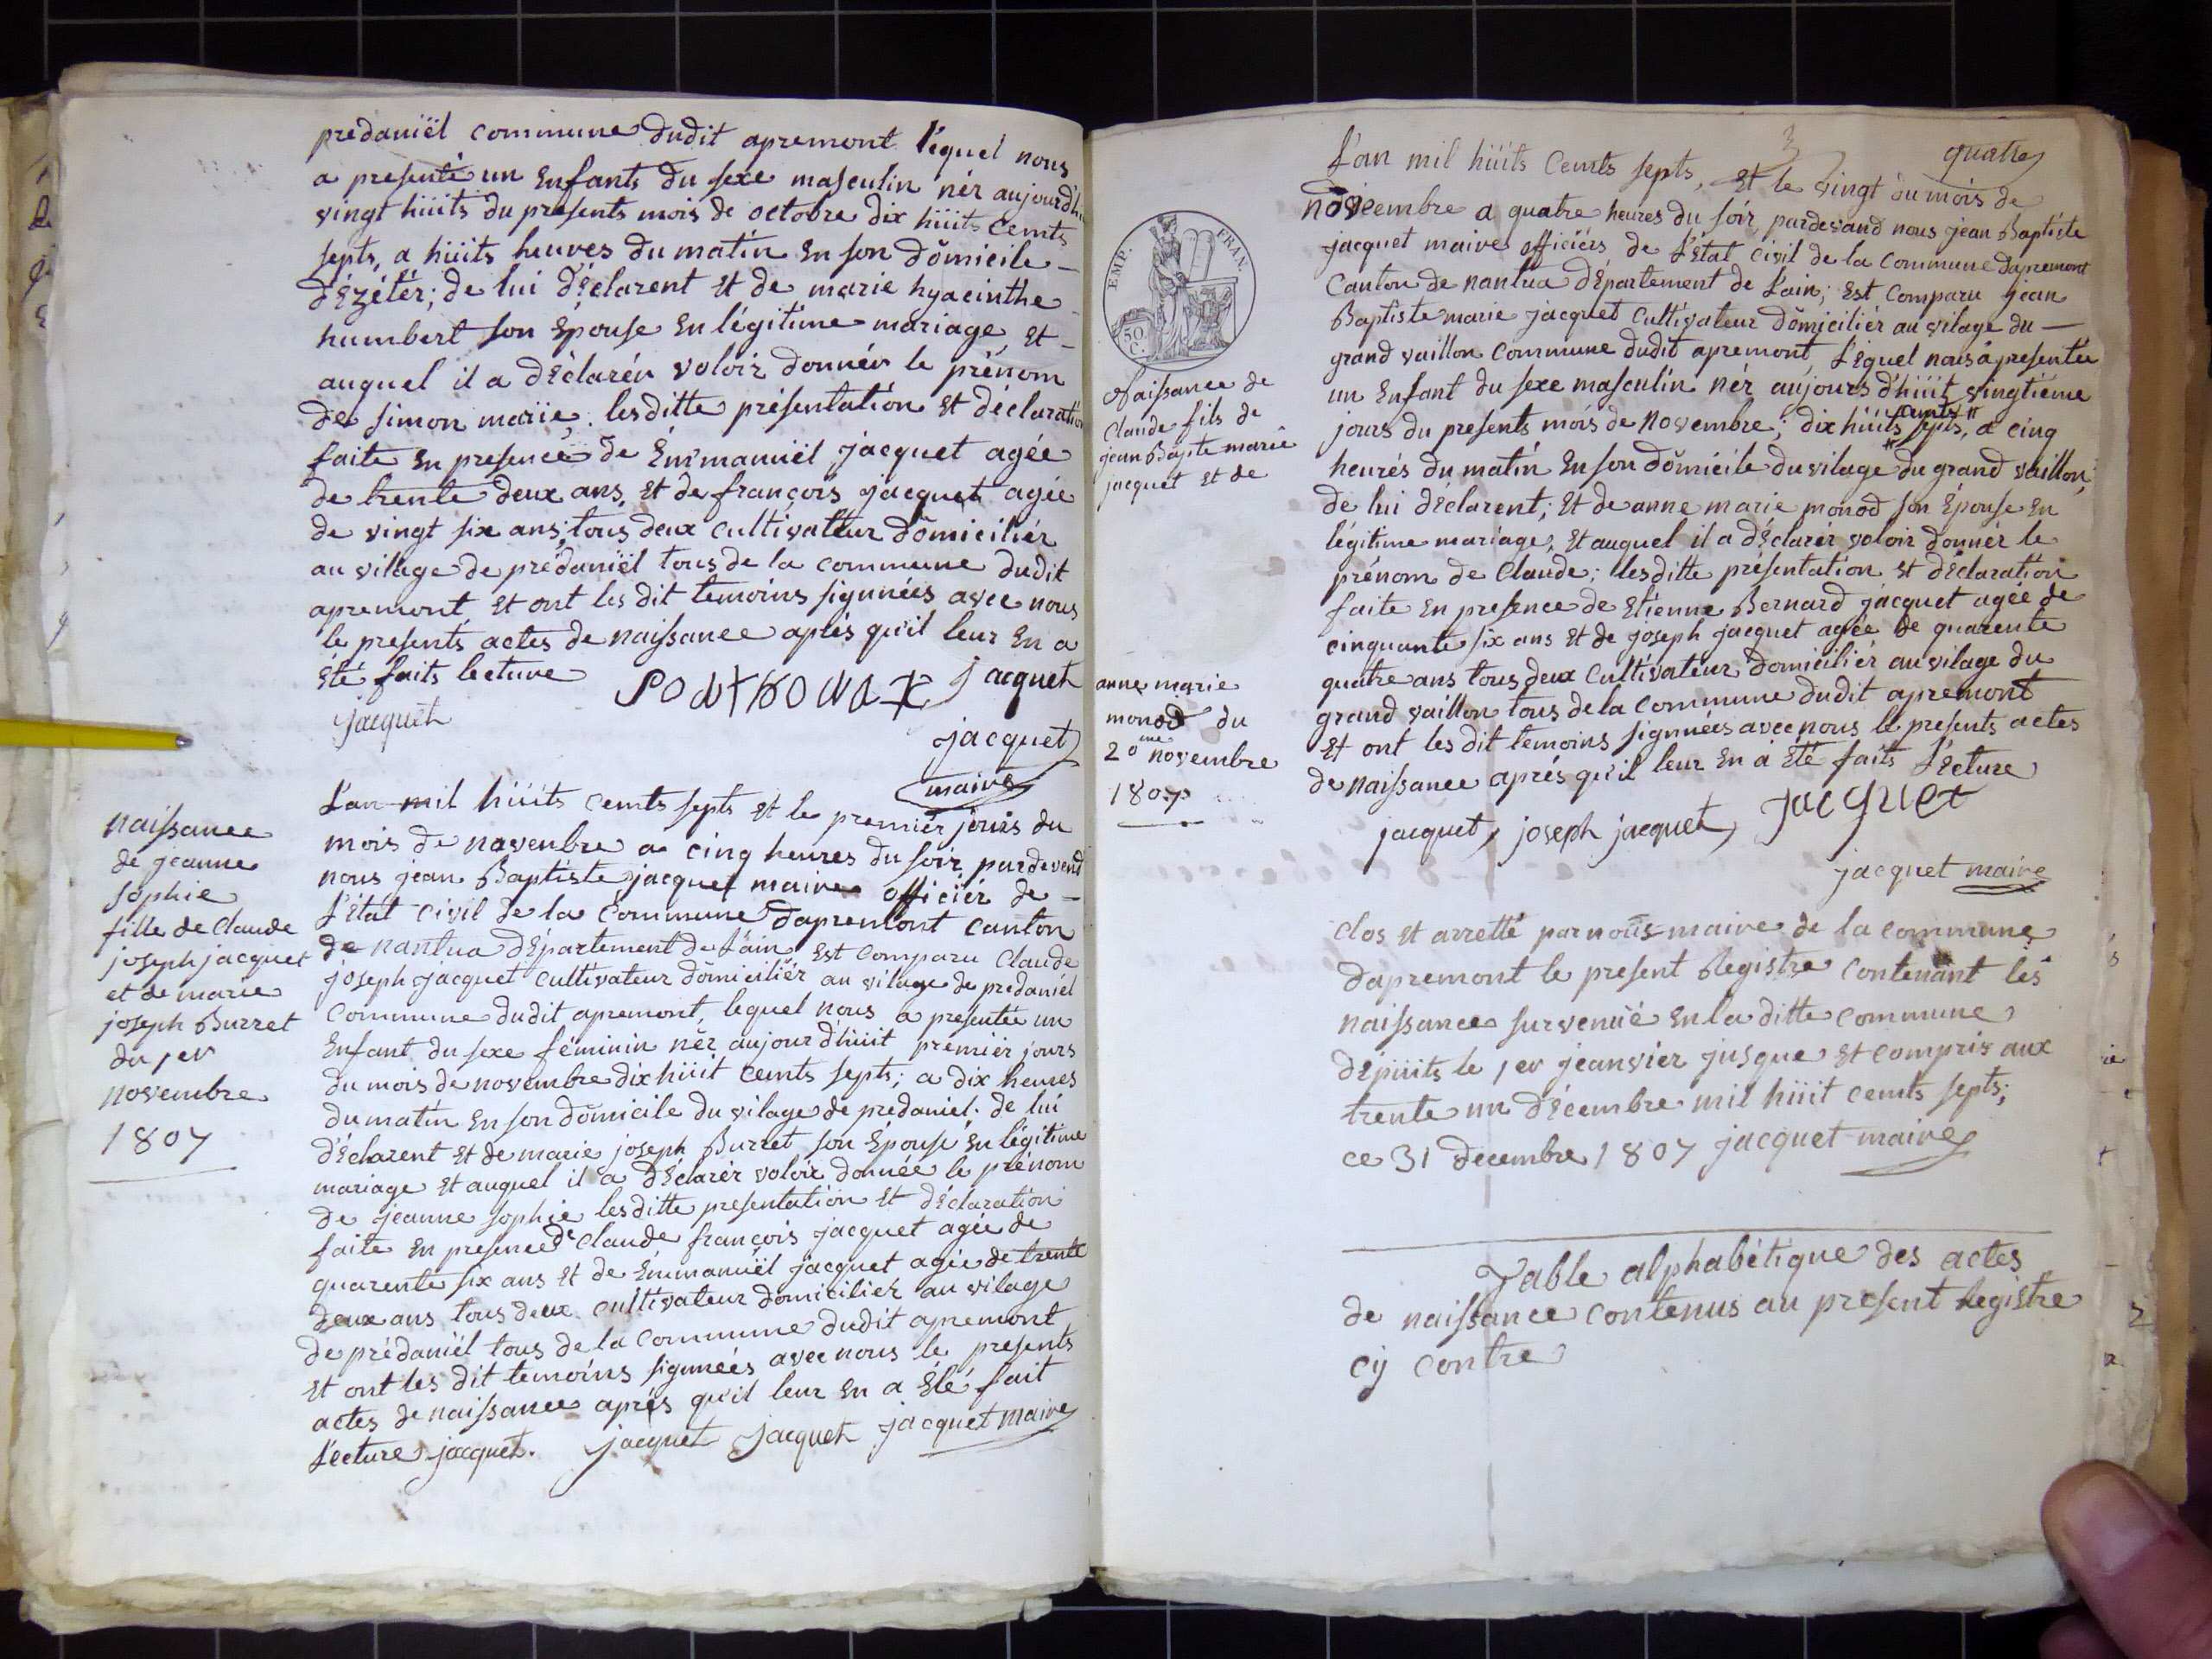 predaniël commune dudit apremont léquel nous
a presenté un Enfants du sexe masculin nér aujourd'hu
vingt hüits du présents mois de octobre dix hüits cemts
septs, a hüits heures du matin En son dŏmicile –
d'Ezétér; de lui d'éclarent Et de marie hyacinthe
humbert son Épouse En légitime mariage, Et –
auquel il a déclarér voloir donnér le prénom
de simon mariie, lesditte présentation Et déclaration
faite En presence de Émmanuël jacquet agée
de trente deux ans, Et de françois jacquet agée
de vingt six ans; tous deux cultivatteur dŏmiciliér
au vilage de prédaniël tous de la commune dudit
apremont Et ont les dit temoins signnées avec nous
le presents actes de naissance aprés qu'il leur En a
Été faits lecture jacquet
jacquet
jacquet
maire
naissance
de jeanne
sophie
fille de Claude
joseph jacquet
et de marie
joseph Burret
du 1er
novembre
1807
L'an mil hüits cemts septs Et le premiér jours du
mois de novenbre a cinq heures du soir pardevend
nous jean Baptiste jacquet maire officiér de –
L'état civil de la Commune dapremont canton
de nantua département de L'ain, Est comparu Claude
joseph jacquet cultivateur dŏmiciliér au vilage de predaniel
commune dudit apremont, lequel nous a presentée un
Enfant du sexe féminin nér aujour d'hüit premiér jours
du mois de novembre dix hüit cemts septs; a dix heures
du matin En son dŏmicile du vilage de predaniel. de lui
d'éclarent Et de marie joseph Burret son Épouse En légitime
mariage Et auquel il a déclarér voloir donnée le prénom
de jeanne sophie lesditte presentation Et déclaration
faite En presence de Claude françois jacquet agée de
quarente six ans Et de Émmanuël jacquet agée de trente
deux ans tous deux cultivateur domiciliér au vilage
de prédaniël tous de la commune dudit apremont
Et ont les dit temoins signnées avec nous le presents
actes de naissance aprés qu'il leur En a Été fait
L'ecture jacquet. jacquet jacquet jacquet maire
3 quatre
EMP. FRAN.
50 C.
Naissance de
Claude fils de
jean Bapte marie
jacquet Et de
anne marie
monod du
20me novembre
1807
L'an mil hüits Cemts septs, Et le vingt du mois de
novembre a quatre heures du soir, pardevand nous jean Baptiste
jacquet maire officiérs de L'état civil de la Commune dapremont
Canton de nantua département de L'ain; Est Comparu jean
Baptiste marie jacquet Cultivateur dŏmiciliér au vilage du –
grand vaillon commune dudit apremont, Léquel nous a presentée
un Enfant du sexe masculin nér aujours d'hüit vingtiéme
jours du presents mois de novembre; dix hüits cemts septs, a cinq
heurés du matin En son dŏmicile du vilage du grand vaillon,
de lui déclarent; Et de anne marie monod son Épouse En
légitime mariage, Et auquel il a déclarér voloir donnér le
prénom de Claude; lesditte présentation Et déclaration
faite En presence de Etienne Bernard jacquet agée de
cinquante six ans Et de joseph jacquet agée de quarente
quatre ans tous deux Cultivateur domiciliér au vilage du
grand vaillon tous de la Commune dudit apremont
Et ont les dit temoins signnées avec nous le presents actes
de naissance aprés qu'il leur En a Eté faits L'écture
jacquet, joseph jacquet, jacquet
jacquet maire
clos Et arretté par nous maire de la commune
dapremont le present Registre contenant les
naissance survenüë En la ditte commune
dépüits le 1er jeanvier jusque Et compris aux
trente un décembre mil hüit cemts septs;
ce 31 decembre 1807 jacquet maire
Table alphabétique des actes
de naissance contenus au present Registre
cij contre